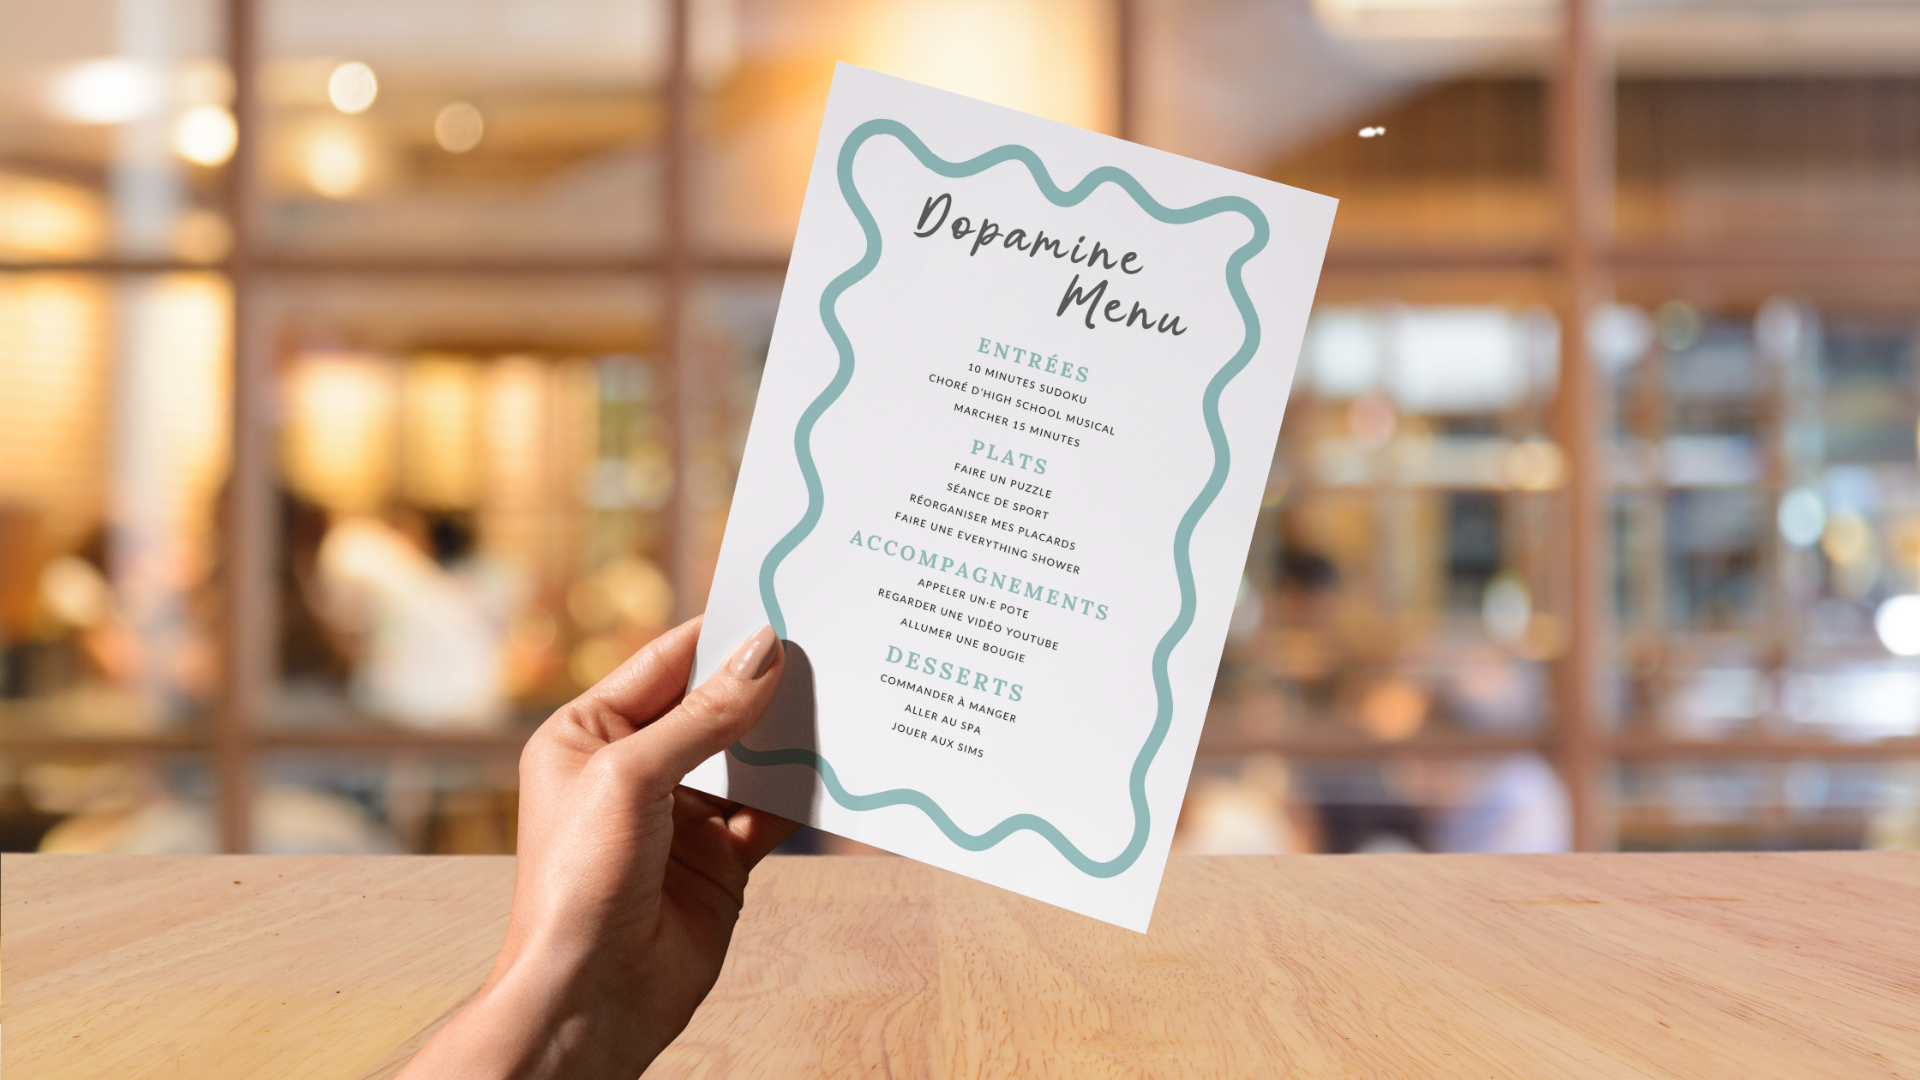 Dopamine
Menu
ENTRÉES
10 MINUTES SUDOKU
CHORÉ D'HIGH SCHOOL MUSICAL
MARCHER 15 MINUTES
PLATS
FAIRE UN PUZZLE
SÉANCE DE SPORT
RÉORGANISER MES PLACARDS
FAIRE UNE EVERYTHING SHOWER
ACCOMPAGNEMENTS
APPELER UN·E POTE
REGARDER UNE VIDÉO YOUTUBE
ALLUMER UNE BOUGIE
DESSERTS
COMMANDER À MANGER
ALLER AU SPA
JOUER AUX SIMS